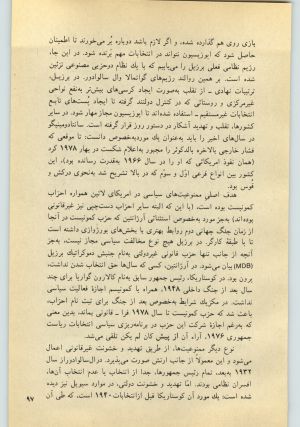 بازی روی هم گذارده شده، و اگر لازم باشد دوباره بُر می‌خورند تا اطمینان
حاصل شود که اپوزیسیون نتواند در انتخابات مهم برنده شود. در این جا،
رژیم نظامی فعلی برزیل را می‌یابیم که با یك نظام دوحزبی مصنوعی تزئین
شده است. بر همین روالند رژیم‌های گواتمالا و السالوادور. در برزیل،
ترتیبات نهادی ــ از تقلب به‌صورت ایجاد کرسی‌های بیش‌تر به‌نفع نواحی
غیرمرکزی و روستائی که در کنترل دولتند گرفته تا ایجاد پست‌های تابع
انتخابات غیرمستقیم ــ استفاده شده‌اند تا اپوزیسیون مجاز مهار شود. در سایر
کشورها، تقلب و تهدید آشکار در دستور روز قرار گرفته است. سانتادومینگو
در سال‌های اخیر را باید به‌عنوان یك موردبه‌خصوص دانست: تا موقعی که
فشار خارجی بالاخره بالدگوئر را مجبور به‌اعلام شکست در بهار ۱۹۷۸ کرد
(همان نفوذ امریکائی که او را در سال ۱۹۶۶ به‌قدرت رسانده بود)، این
کشور بین انواع فرعی اوّل و سوّم که در بالا تشریح شد به‌نحوی درکش و
قوس بود.
هدف اصلی ممنوعیت‌های سیاسی در امریکای لاتین همواره احزاب
کمونیست بوده است، (با این که البته سایر احزاب دست‌چپی نیز غیرقانونی
بوده‌اند) به‌جز مورد به‌خصوص استثنائی آرژانتین که حزب کمونیست در آنجا
از زمان جنگ جهانی دوم روابط بهتری با بخش‌های بورژوازی داشته است
تا با طبقهٔ کارگر. در برزیل هیچ نوع مخالفت سیاسی مجاز نیست، به‌جز
آنچه از جانب تنها حزب قانونی غیردولتی به‌نام جنبش دموکراتیك برزیل
(MDB) بیان می‌شود. در آرژانتین، کسی که سال‌ها حق انتخاب شدن نداشت،
پرون بود. در کوستاریکا، رئیس جمهور سابق به‌نام کالدرون گواردیا برای چند
سال بعد از جنگ داخلی ۱۹۴۸، همراه با کمونیسم اجازهٔ فعالیت سیاسی
نداشت. در مکزیك شرایط به‌خصوص بعد از جنگ برای ثبت نام احزاب،
باعث شد که حزب کمونیست تا سال ۱۹۷۸ فرا ــ قانونی بماند، بدین معنی
که به‌رغم اجازهٔ شرکت این حزب در برنامه‌ریزی سیاسی انتخابات ریاست
جمهوری ۱۹۷۶، آراء آن از پیش کان لم یکن تلقی می‌شد.
نوع دیگر ممنوعیت‌ها، از طریق تهدید و خشونت غیرقانونی اعمال
می‌شود و این معمولاً از جانب ارتش صورت می‌پذیرد. درالسالوادور از سال
۱۹۳۲ به‌بعد، تمام رئیس جمهورها، جدا از انتخاب یا عدم انتخاب آن‌ها،
افسران نظامی بودند. اما تهدید و خشونت دولتی، در موارد سیویل نیز دیده
شده است؛ یك مورد آن کوستاریکا قبل ازانتخابات ۱۹۴۰ است، که طی آن
۹۷